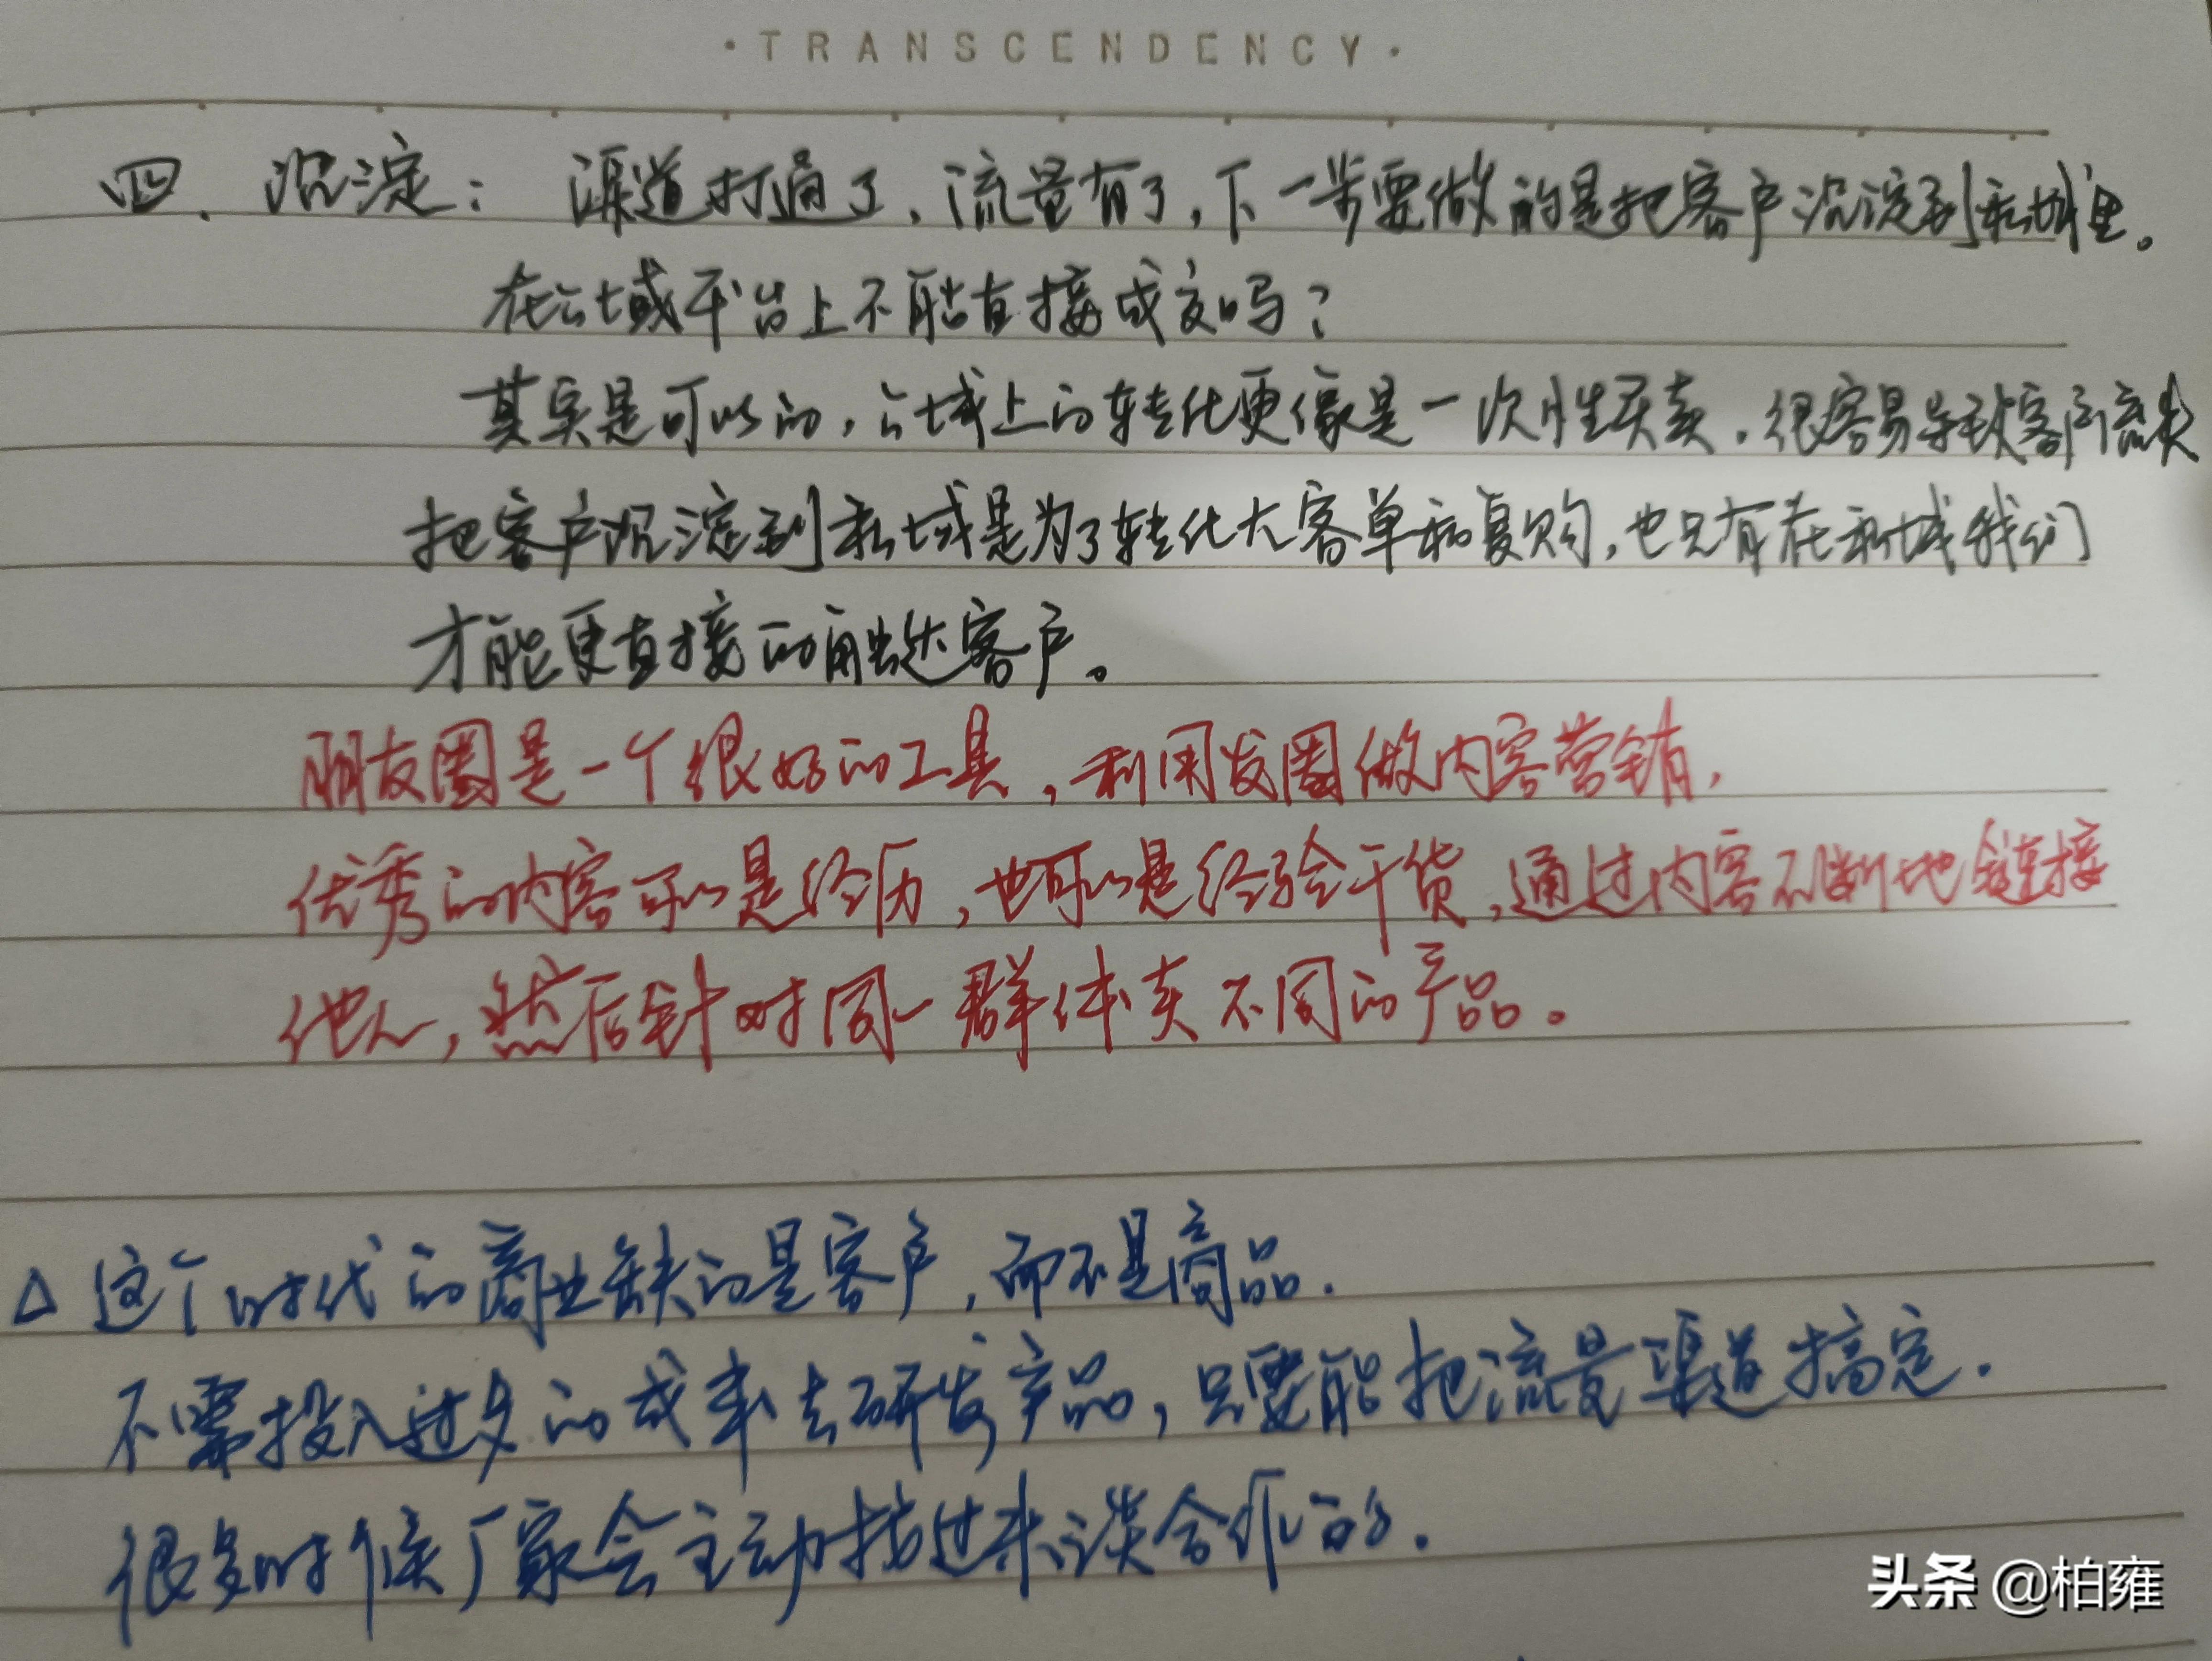 ·TRANSCENDENCY·
四、沉淀：渠道打通了，流量有了，下一步要做的是把客户沉淀到私域里。
在公域平台上不能直接成交吗？
其实是可以的，公域上的转化更像是一次性买卖，很容易导致客户流失
把客户沉淀到私域是为了转化大客单和复购，也只有在私域我们
才能更直接的触达客户。
朋友圈是一个很好的工具，利用发圈做内容营销，
优秀的内容可以是经历，也可以是经验干货，通过内容不断地链接
他人，然后针对同一群体卖不同的产品。
△ 这个时代的商业缺的是客户，而不是商品．
不需投入过多的成本去研发产品，只要能把流量渠道搞定．
很多时候厂家会主动找过来谈合作的．
头条 @柏雍